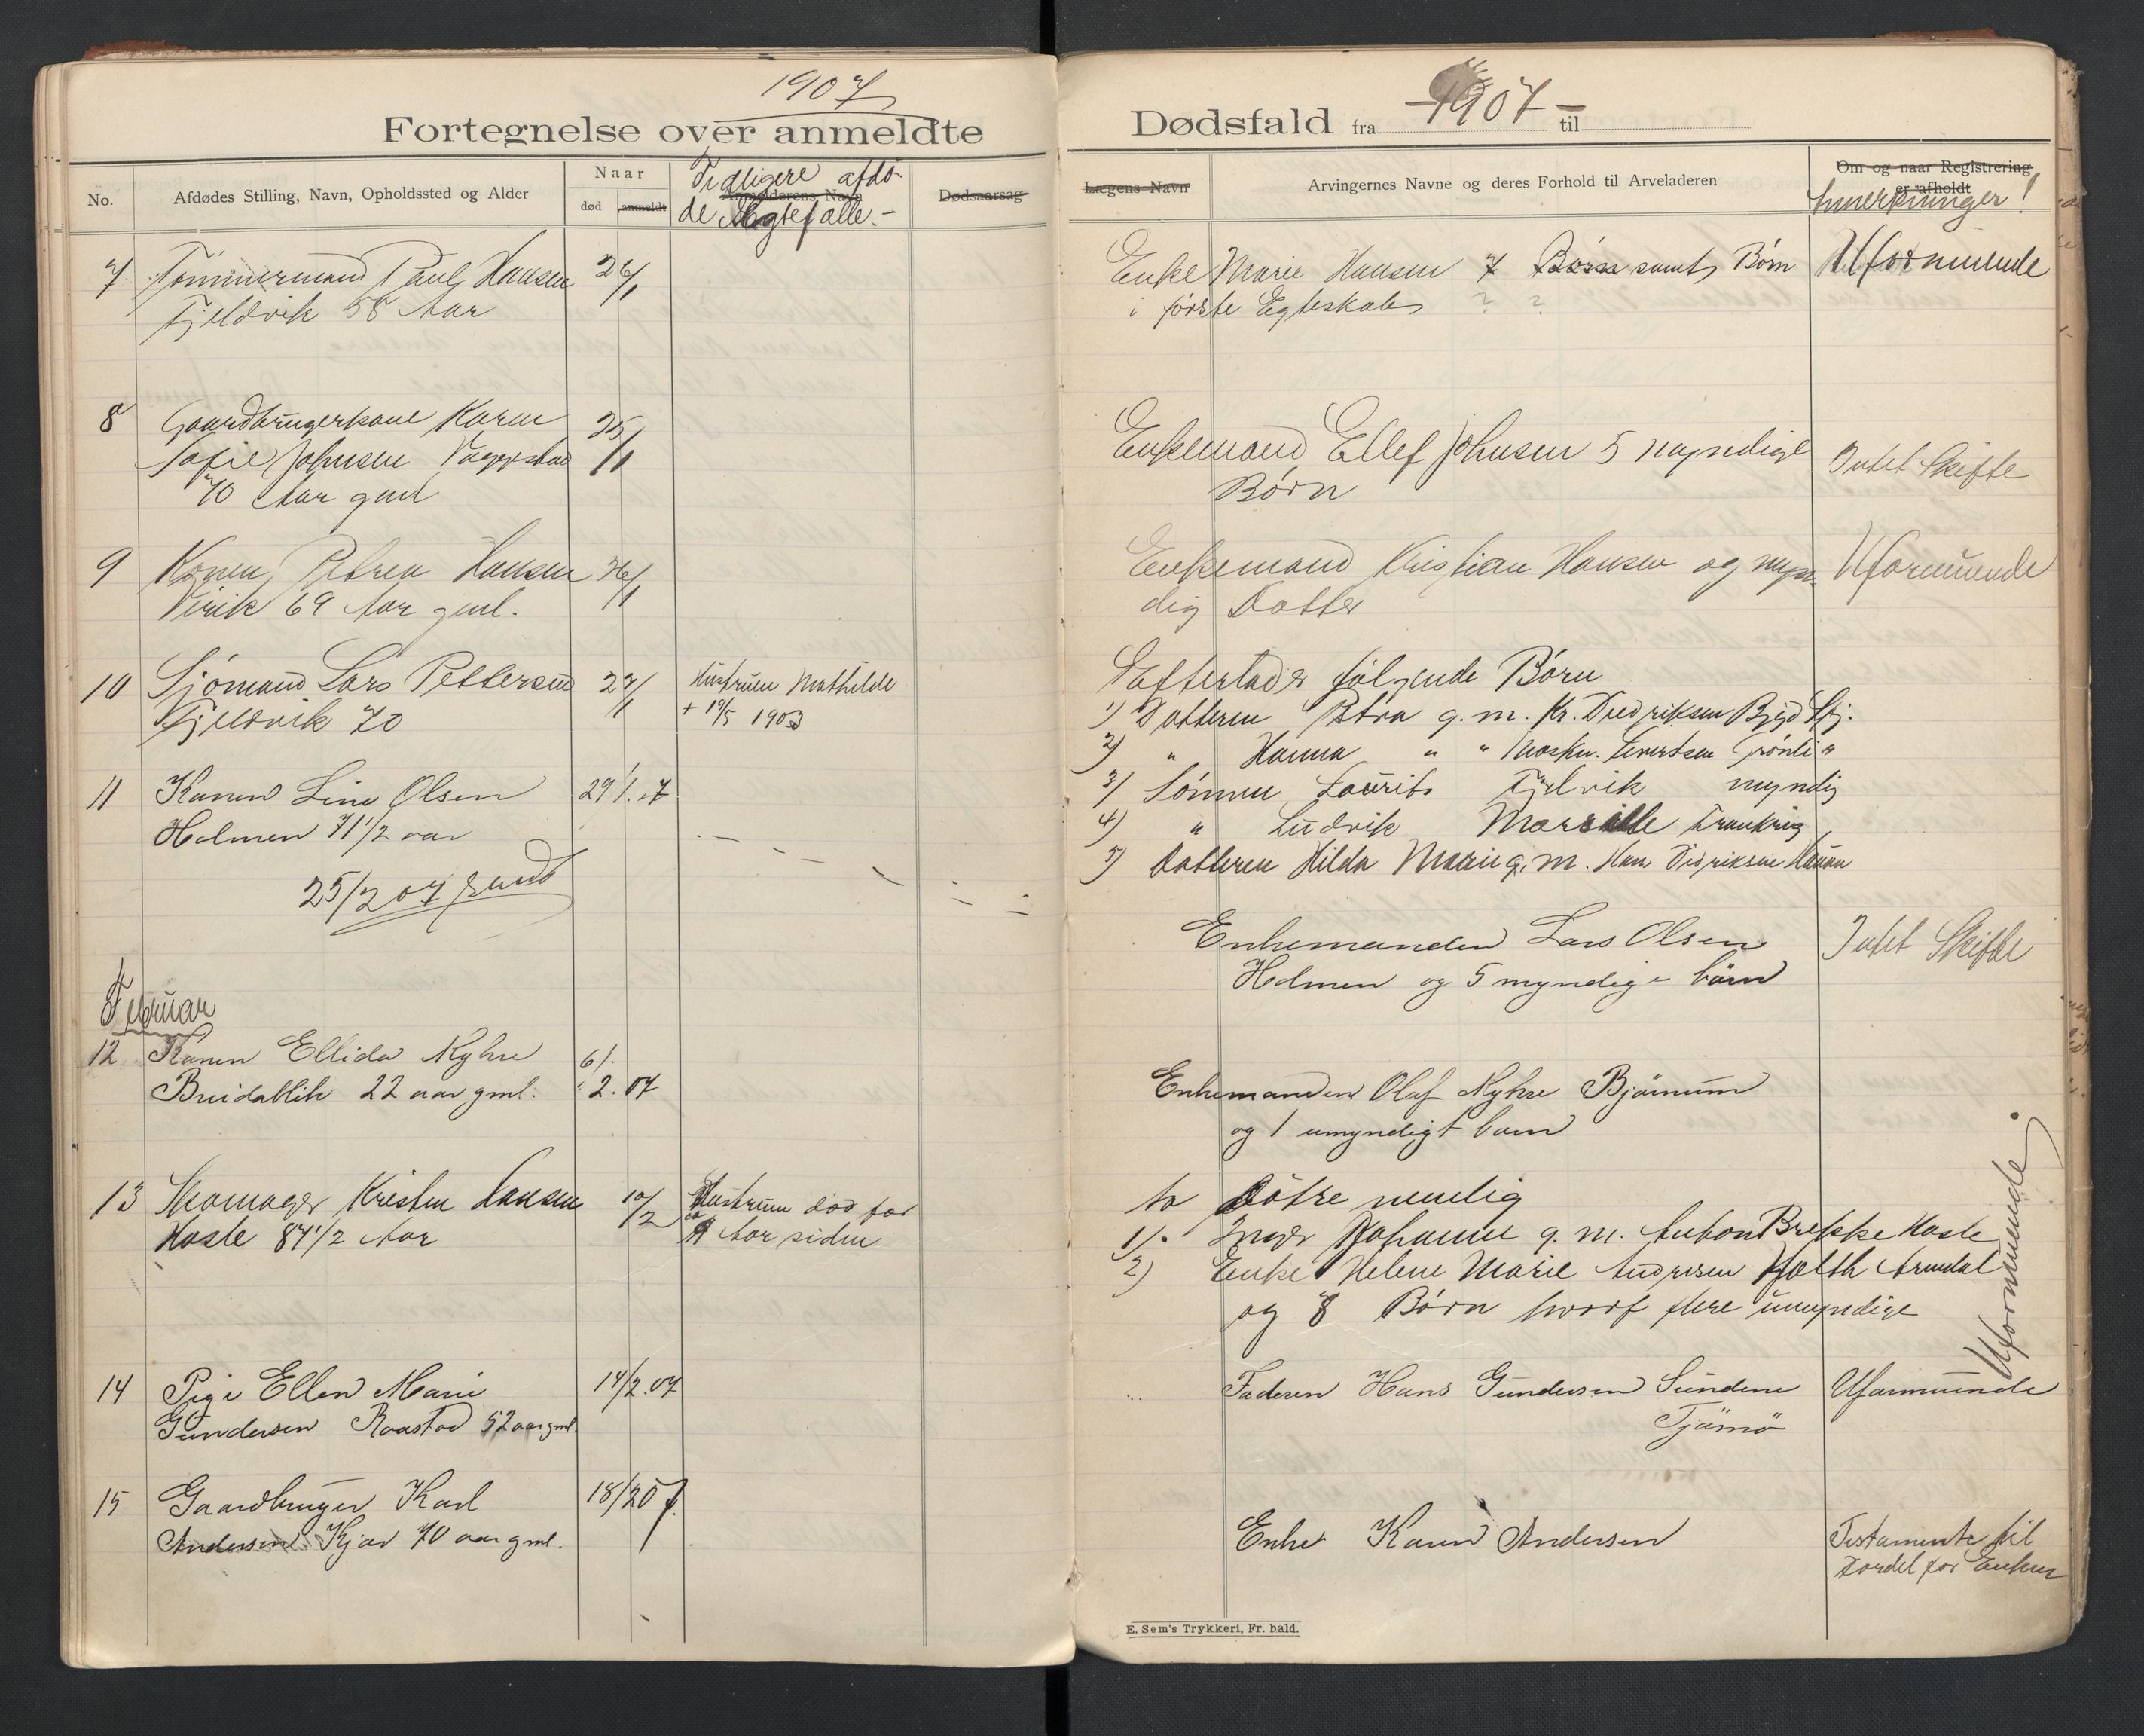 1907
Fortegnelse over anmeldte
Dødsfald fra 1907 til
No.
Afdødes Stilling, Navn, Opholdssted og Alder
Naar
død
anmeldt
Anmelderens Navn
Tidligere afdø-
de Ægtefælle.-
Dødsaarsag
Lægens Navn
Arvingernes Navne og deres Forhold til Arveladeren
Om og naar Registrering
er afholdt
Anmerkninger!
7 Tømmermand Paul Hansen 26/1
Fjeldvik 58 Aar
Enke Marie Hansen 7 Børn samt Børn
i første Egteskab ? ?
Uformuende
8 Gaardbrugerkone Karen 25/1
Sofie Johnsen
70 Aar gml
Enkemand Ellef Johnsen 5 myndige
Børn
Intet Skifte
9 Konen Petrea Hansen 26/1
Virik 69 Aar gml.
Enkemand Kristian Hansen og myn-
dig Datter
Uformuende
10 Sjømand Lars Pettersen 27/1
Fjeldvik 70
Hustruen Mathilde
+ 19/5 1903
Efterlader følgende Børn
1) Datteren Petra g. m. Kr. Dredriksen
2) " Hanna " " Maskn. Evertsen Grønli "
3) Sønnen Laurits Fjelvik myndig
4) " Ludvik Marsille Frankrig
5) Datteren Hilda Marie g. m. Hans Didriksen
11 Konen Line Olsen 29/1.07
Holmen 71 1/2 aar
25/2 07 sendt
Enkemanden Lars Olsen
Holmen og 5 myndige børn
Intet Skifte
Februar
12 Konen Ellida Nyhre 6/.
Breidablik 22 aar gml. 2.07
Enkemanden Olaf Nyhre Bjørnum
og 1 umyndigt barn
13 Skomager Kristen Hansen 10/2
Hasle 87 1/2 Aar
Hustruen død for
Aar siden
to Døtre nemlig
1). Inger Johanne g. m. Anton Brekke Hasle
2) Enke Helene Marie Andresen Holth Arendal
og 8 Børn hvorf flere umyndige
Uformuende.
14 Pige Ellen Marie 14/2.07
Gundersen Raastad 52 aar gml.
Faderen Hans Gundersen Sundene
Tjømø
Uformuende
15 Gaardbruger Karl 18/2 07.
Andersen Kjær 70 aar gml.
Enke Karen Andersen
Testamente til
Fordel for Enken
E. Sem's Trykkeri, Fr. hald.